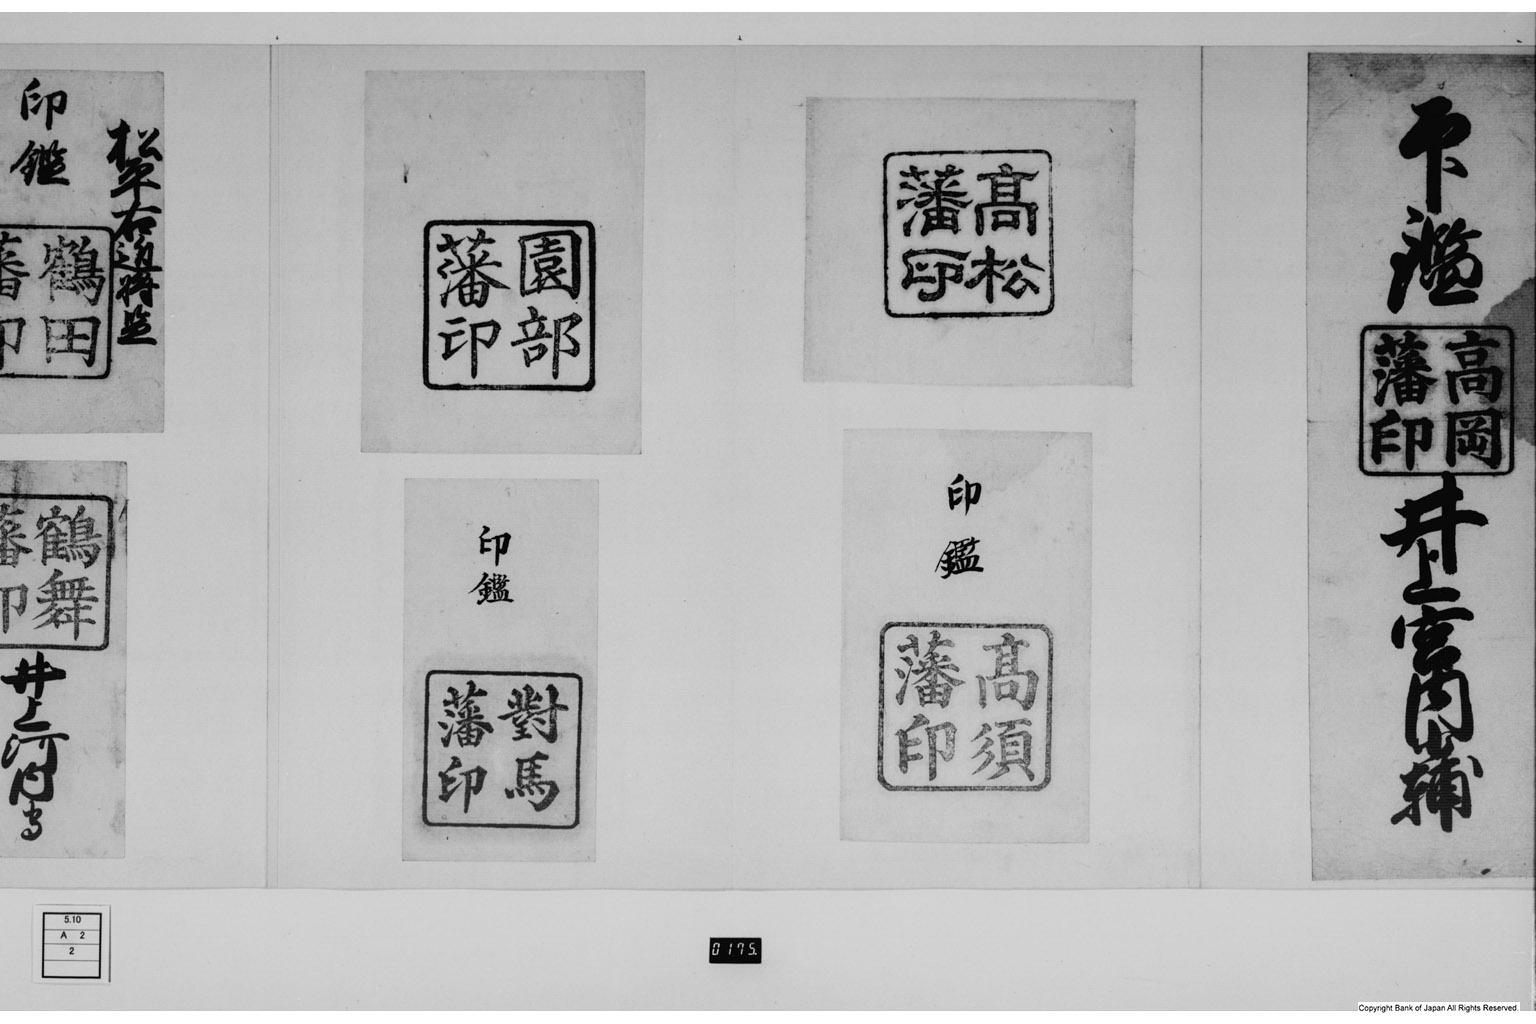 印鑑
高岡
藩印
井上宮内少輔
高松
藩印
印鑑
高須
藩印
園部
藩印
印鑑
對馬
藩印
松平右近将監
印鑑
鶴田
藩印
鶴舞
藩印
井上河内守
5.10
A 2
2
0175.
Copyright Bank of Japan All Rights Reserved.